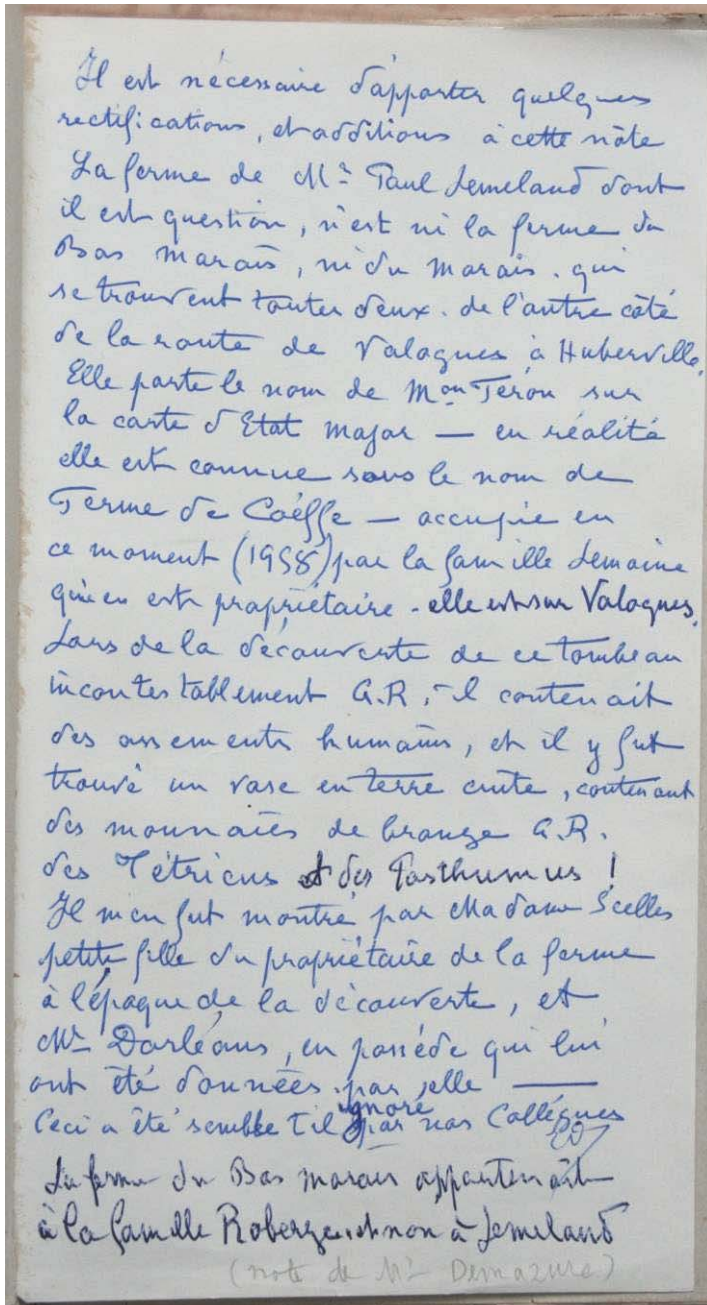 Il est nécessaire d'apporter quelques
rectifications, et additions à cette note
La ferme de Mr Paul Lemeland dont
il est question, n'est ni la ferme du
Bas Marais, ni du Marais. qui
se trouvent toutes deux. de l'autre côté
de la route de Valognes à Huberville.
Elle porte le nom de Mon Féron sur
la carte d'Etat major — en réalité
elle est connue sous le nom de
Ferme de Coëffe — occupée en
ce moment (1958) par la famille Lemoine
qui en est propriétaire - elle est sur Valognes.
Lors de la découverte de ce tombeau
incontestablement G.R, il contenait
des ossements humains, et il y fut
trouvé un vase en terre cuite, contenant
des monnaies de bronze G.R.
des Tétricus et des Posthumus !
Il m'en fut montré par Madame Scelles
petite fille du propriétaire de la ferme
à l'époque de la découverte, et
Mr Dorléans, en possède qui lui
ont été données par elle —
Ceci a été semble t'il ignoré par nos Collègues
La ferme du Bas marais appartenait
à la famille Roberge et non à Lemeland
(note de Mr Demazure)